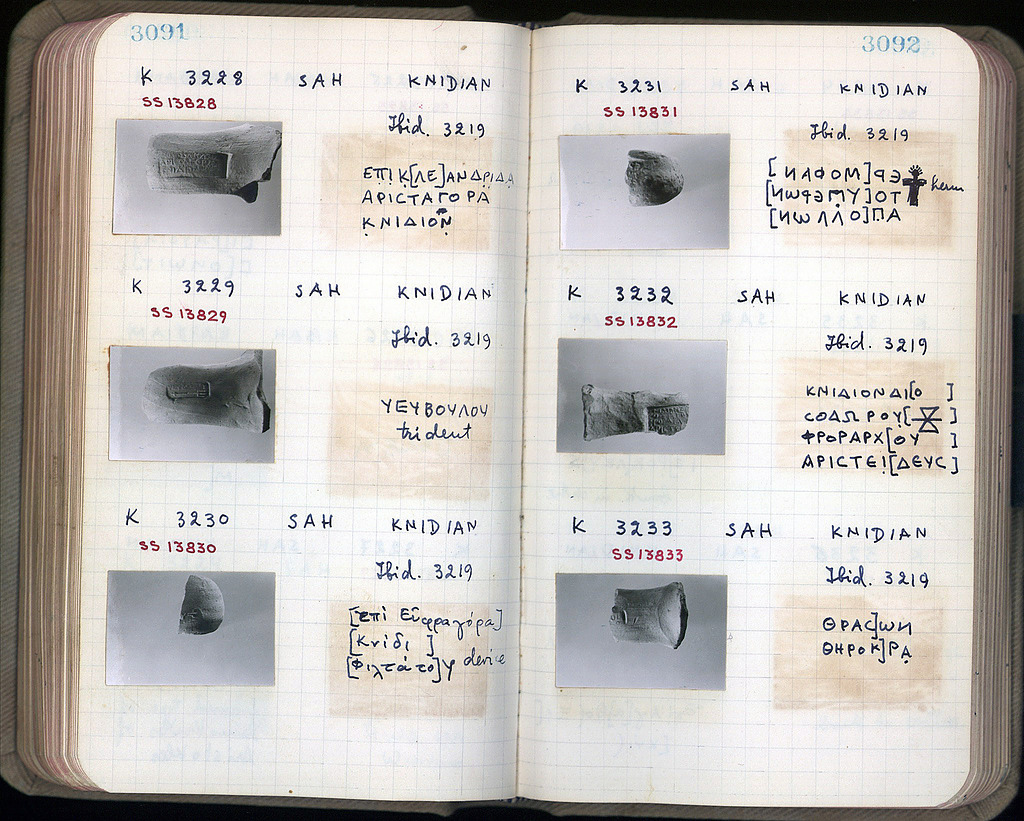 3091
K 3228 SAH KNIDIAN
SS 13828
Ibid. 3219
ΕΠΙΚ[ΛΕ]ΑΝΔΡΙΔΑ
ΑΡΙΣΤΑΓΟΡΑ
ΚΝΙΔΙΟΝ
K 3229 SAH KNIDIAN
SS 13829
Ibid. 3219
ΥΕΥΒΟΥΛΟΥ
trident
K 3230 SAH KNIDIAN
SS 13830
Ibid. 3219
[ἐπὶ Εὐφραγόρα]
[Κνίδι ]
[Φιλτάτο]υ device
3092
K 3231 SAH KNIDIAN
SS 13831
Ibid. 3219
[ΝΑΦΟΜ]ΡΕ
[ΝΩΡΕΜΥ]ΟΤ herm
[ΝΩΛΛΟ]ΠΑ
K 3232 SAH KNIDIAN
SS 13832
Ibid. 3219
ΚΝΙΔΙΟΝΔΙ[Ο ]
CΟΔΩΡΟΥ[ ]
ΦΡΟΡΑΡΧ[ΟΥ ]
ΑΡΙCΤΕΙ[ΔΕΥC]
K 3233 SAH KNIDIAN
SS 13833
Ibid. 3219
ΘΡΑC]ΩΝ
ΘΗΡΟΚ]ΡΑ